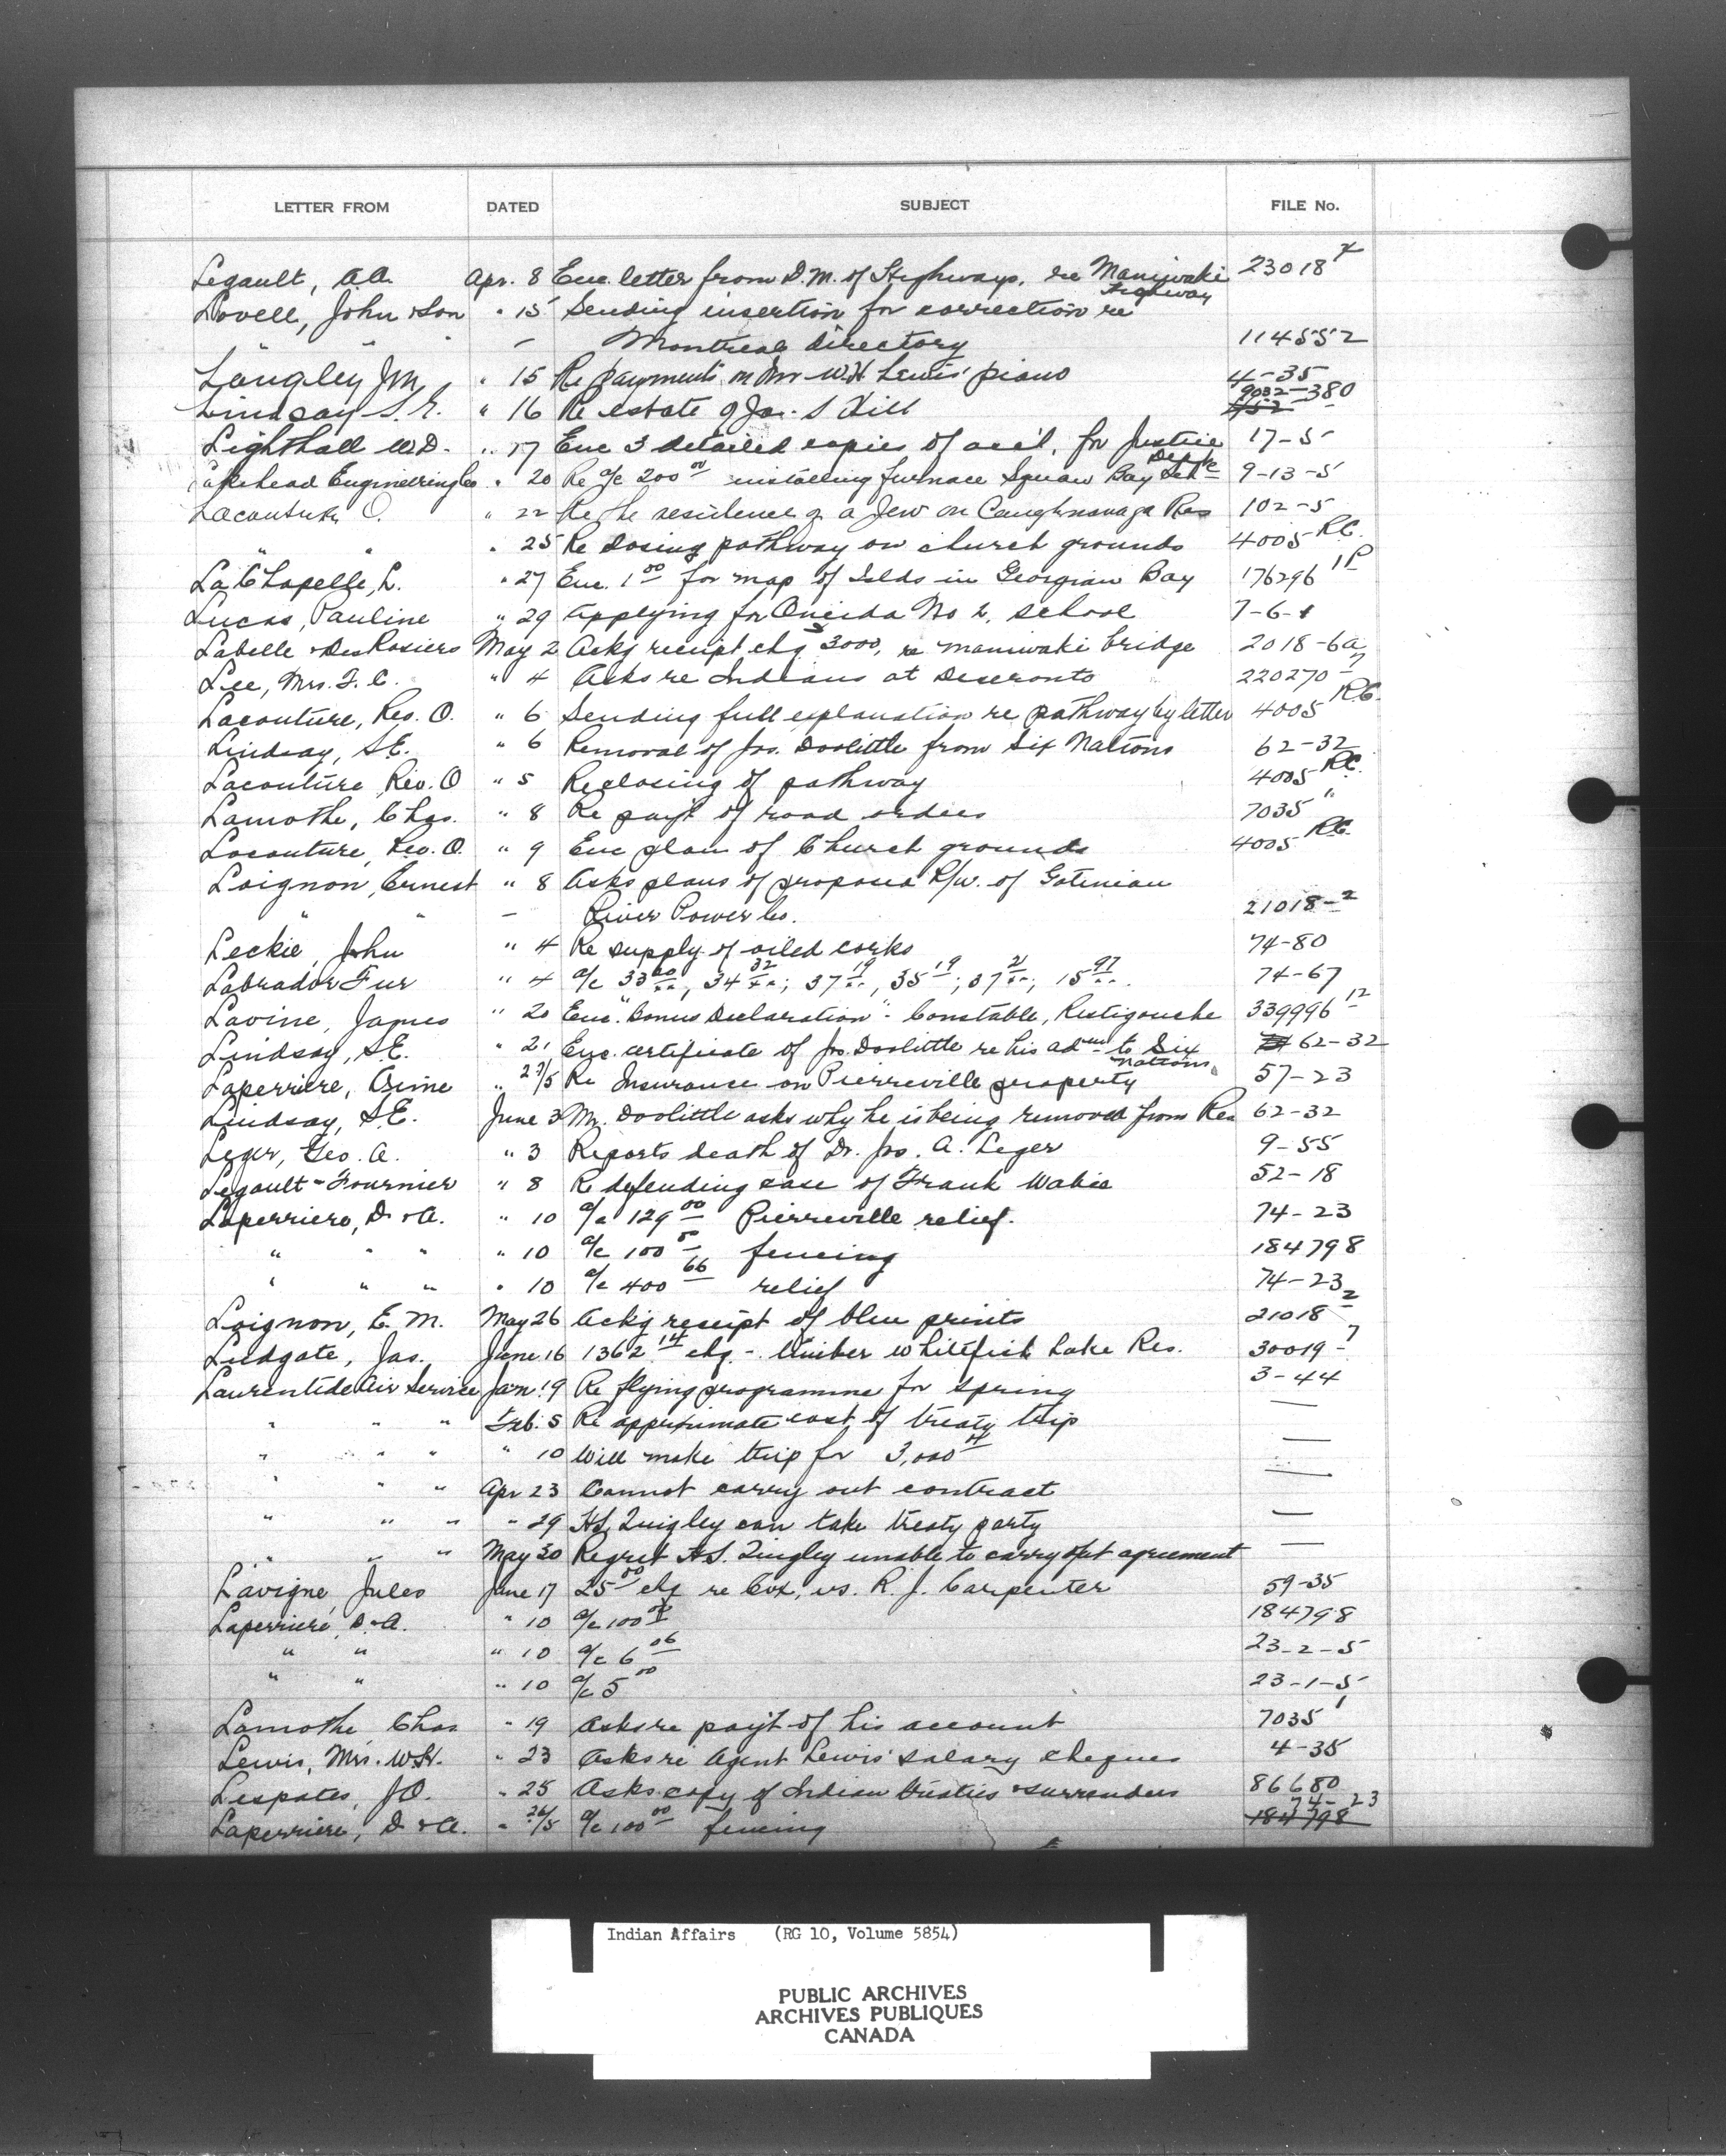 LETTER FROM DATED SUBJECT FILE No.
Legault, A.A. Apr. 8 Enc. letter from D.M. of Highways, re Maniwaki Highway 23018
Lovell, John & Son " 15 Sending insertion for correction re
" " " – Montreal Directory 114552
Langley Jm " 15 Re payments on Mr W.H. Lewis' piano 4-35
Lindsay S.E. " 16 Re estate of Jas. S Hill 9032-380
Lighthall W.D. " 17 Enc 3 detailed copies of acc't. for Justice Dept 17-5
Lakehead Engineering Co. " 20 Re a/c 200 00 installing furnace Squaw Bay Sch 9-13-5
Lacouture O. " 22 Re the residence of a Jew on Caughnawaga Res 102-5
" " " 25 Re closing pathway on church grounds 4005 R.C.
La Chapelle, L. " 27 Enc. 1 00 for map of Islds in Georgian Bay 176296
Lucas, Pauline " 29 Applying for Oneida No 2, school 7-6-1
Labelle & DesRosiers May 2 Ackg receipt chq 3000, re Maniwaki bridge 2018-6a
Lee, Mrs. F. C. " 4 Asks re Indians at Deseronto 220270
Lacouture, Rev. O. " 6 Sending full explanation re pathway by letter 4005 R.C.
Lindsay, S.E. " 6 Removal of Jos. Doolittle from Six Nations 62-32
Lacouture, Rev. O " 5 Re closing of pathway 4005 R.C.
Lamothe, Chas. " 8 Re payt of road orders 7035 "
Lacouture, Rev. O. " 9 Enc plan of Church grounds 4005 R.C.
Loignon, Ernest " 8 Asks plans of proposed R/w. of Gatineau
" " – River Power Co. 21018-2
Leckie, John " 4 Re supply of oiled corks 74-80
Labrador Fur " 4 a/c 33, 34 32; 37 19, 35 19; 37 21; 15 97. 74-67
Lavine, James " 20 Enc. "Bonus Declaration" - Constable, Restigouche 339996 12
Lindsay, S.E. " 21 Enc. certificate of Jos. Doolittle re his adm to Six Nations. 62-32
Laperriere, Osime " 27/5 Re Insurance on Pierreville property 57-23
Lindsay, S.E. June 3 Mr. Doolittle asks why he is being removed from Res 62-32
Leger, Geo. A. " 3 Reports death of Dr. Jos. A. Leger 9-55
Legault & Fournier " 8 Re defending case of Frank Wabie 52-18
Laperriere, D & A. " 10 a/c 129 00 Pierreville relief. 74-23
" " " " 10 a/c 100 00 fencing 184798
" " " " 10 a/c 400 66 relief 74-23
Loignon, E. M. May 26 Ackg receipt of blue prints 21018 2
Ludgate, Jas. June 16 1362 14 chq - timber Whitefish Lake Res. 30019 - 7
Laurentide Air Service Jan. 19 Re flying programme for spring 3-44
" " " Feb. 5 Re approximate cost of treaty trip —
" " " " 10 Will make trip for 3,000 —
" " " Apr 23 Cannot carry out contract —
" " " " 29 H.S. Quigley can take treaty party —
" " " May 30 Regret H.S. Quigley unable to carry out agreement —
Lavigne, Jules June 17 25 00 chq re Cox, vs. R. J. Carpenter 59-35
Laperriere, D. & A. " 10 a/c 100 00 184798
" " " 10 a/c 6 06 23-2-5
" " " 10 a/c 5 00 23-1-5
Lamothe Chas " 19 Asks re pay't of his account 7035 1
Lewis, Mrs. W.H. " 23 Asks re Agent Lewis' salary cheques 4-35
Lespates, J.O. " 25 Asks copy of Indian treaties & surrenders 86680
Laperriere, D & A. " 26/5 a/c 100 00 fencing 74-23 184798
Indian Affairs (RG 10, Volume 5854)
PUBLIC ARCHIVES
ARCHIVES PUBLIQUES
CANADA